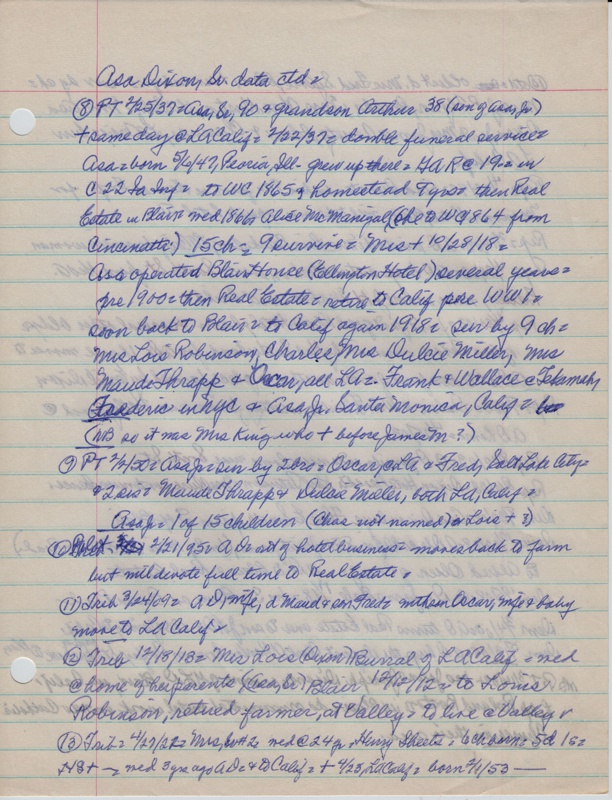 Asa Dixon, Sr. data ctd =
(8) PT 2/25/37 = Asa, Sr, 90 & grandson Arthur 38 (son of Asa, Jr)
+ same day @ LA Calif = 2/22/37 = double funeral service =
Asa = born 5/4/47, Peoria, Ill - grew up there = GAR @ 19 = in
C 22 Ia Inf = to WC 1865 & homestead Tyso = then Real
Estate in Blair = med 1866 Alice McManigal (she to WC 1864 from
Cincinatti) 15 ch = 9 survive = Mrs + 10/28/18 =
Asa operated Blair House (Ellington Hotel) several years =
pre 1900 = then Real Estate = retire to Calif pre WW1 =
soon back to Blair = to Calif again 1918 = sur by 9 ch =
Mrs Lois Robinson, Charles, Mrs Dulcie Miller, Mrs
Maude Thrapp & Oscar, all LA = Frank & Wallace @ Tekamah,
Frederic in NYC & Asa, Jr. Santa Monica, Calif =
(NB so it was Mrs King who + before James M ?)
9) PT = Asa Jr = sur by 2 bro = Oscar, @ LA & Fred, Salt Lake City =
& 2 sis = Maude Thrapp & Dulcie Miller, both LA, Calif =
Asa Jr = 1 of 15 children (Chas not named) & Lois + ?)
(10) 2/21/95 = A D out of hotel business = moves back to farm
but will devote full time to Real Estate =
(11) Trib 3/24/09 = A D, wife, d Maud & son Fred = with son Oscar, wife & baby
move to LA Calif =
(12) Trib 12/18/13 = Mrs Lois (Dixon) Burral of LA Calif = med
@ home of her parents (Asa, Sr) Blair 12/12 = to Louis
Robinson, retired farmer, at Valley = to live @ Valley
(13) Trib = 4/27/22 = Mrs, med @ 24 yr = Henry Sheets = 6 ch born = 5 d 1 s =
HS + = med 3 yrs ago A D & to Calif = + 4/23, LA Calif = born 2/1/53